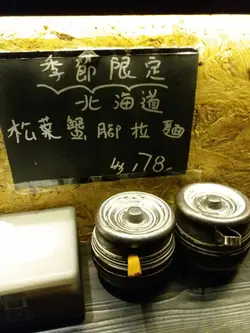 季節限定
北海道
松葉蟹腳拉麵
$178.-